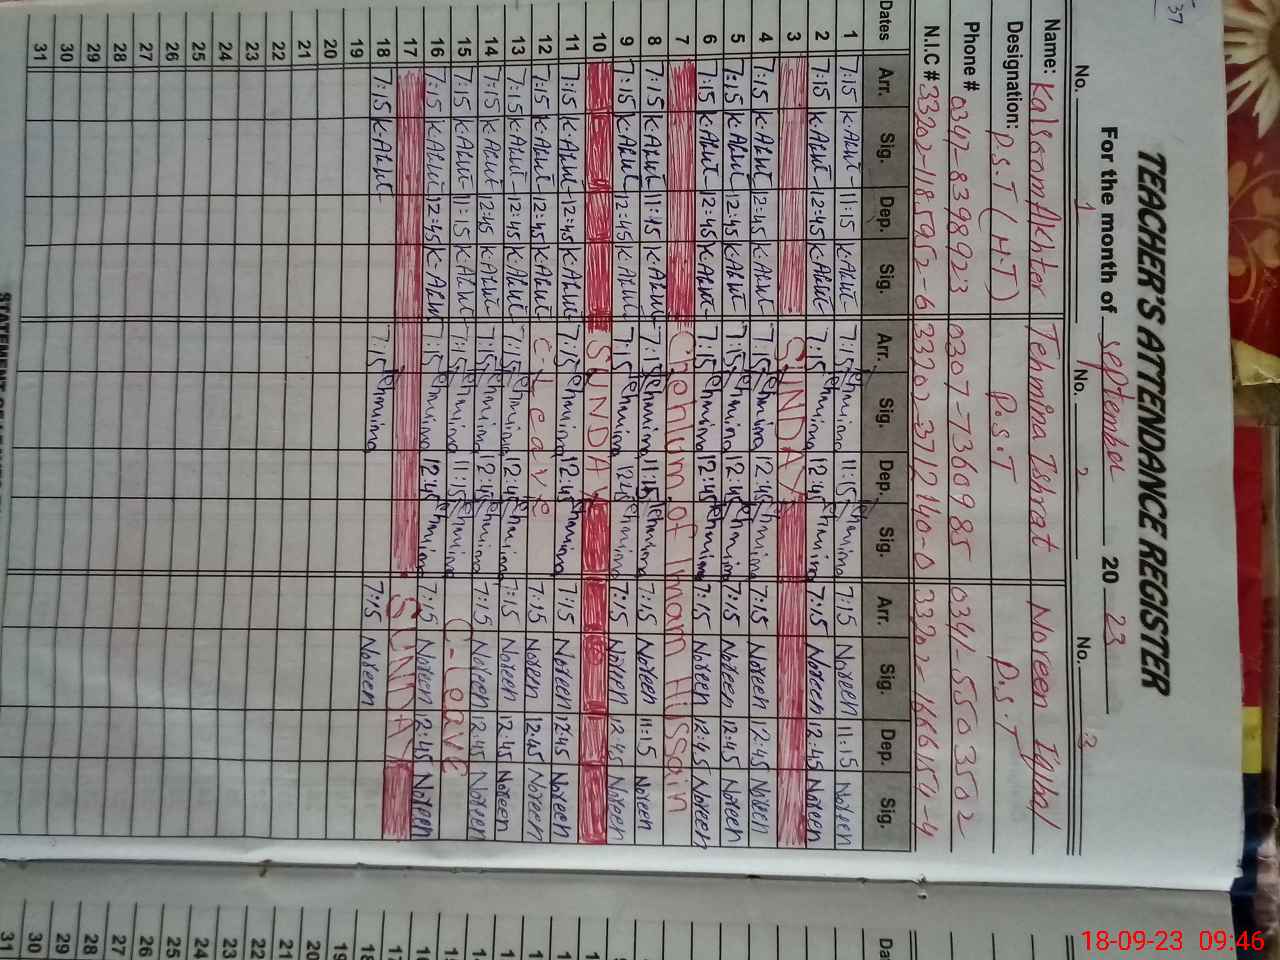 37
TEACHER'S ATTENDANCE REGISTER
For the month of September 20 23
No. 1 No. 2 No. 3
Name: Kalsoom Akhter Tehmina Ishrat Noreen Iqbal
Designation: P.S.T (H.T) P.S.T P.S.T
Phone # 0347-8398923 0307-7360985 0341-5503502
N.I.C # 33202-1185952-6 33202-3712140-0 33202-1666154-4
Dates Arr. Sig. Dep. Sig. Arr. Sig. Dep. Sig. Arr. Sig. Dep. Sig.
1 7:15 K-Akht 11:15 K-Akht 7:15 Tehmina 11:15 Tehmina 7:15 Noreen 11:15 Noreen
2 7:15 K-Akht 12:45 K-Akht 7:15 Tehmina 12:45 Tehmina 7:15 Noreen 12:45 Noreen
3 SUNDAY
4 7:15 K-Akht 12:45 K-Akht 7:15 Tehmina 12:45 Tehmina 7:15 Noreen 12:45 Noreen
5 7:15 K-Akht 12:45 K-Akht 7:15 Tehmina 12:45 Tehmina 7:15 Noreen 12:45 Noreen
6 7:15 K-Akht 12:45 K-Akht 7:15 Tehmina 12:45 Tehmina 7:15 Noreen 12:45 Noreen
7 Chehlum of Imam Hussain
8 7:15 K-Akht 11:15 K-Akht 7:15 Tehmina 11:15 Tehmina 7:15 Noreen 11:15 Noreen
9 7:15 K-Akht 12:45 K-Akht 7:15 Tehmina 12:45 Tehmina 7:15 Noreen 12:45 Noreen
10 SUNDAY
11 7:15 K-Akht 12:45 K-Akht 7:15 Tehmina 12:45 Tehmina 7:15 Noreen 12:45 Noreen
12 7:15 K-Akht 12:45 K-Akht C-Leave 7:15 Noreen 12:45 Noreen
13 7:15 K-Akht 12:45 K-Akht 7:15 Tehmina 12:45 Tehmina 7:15 Noreen 12:45 Noreen
14 7:15 K-Akht 12:45 K-Akht 7:15 Tehmina 12:45 Tehmina 7:15 Noreen 12:45 Noreen
15 7:15 K-Akht 11:15 K-Akht 7:15 Tehmina 11:15 Tehmina C-Leave
16 7:15 K-Akht 12:45 K-Akht 7:15 Tehmina 12:45 Tehmina 7:15 Noreen 12:45 Noreen
17 SUNDAY
18 7:15 K-Akht 7:15 Tehmina 7:15 Noreen
19
20
21
22
23
24
25
26
27
28
29
30
31
18-09-23 09:46